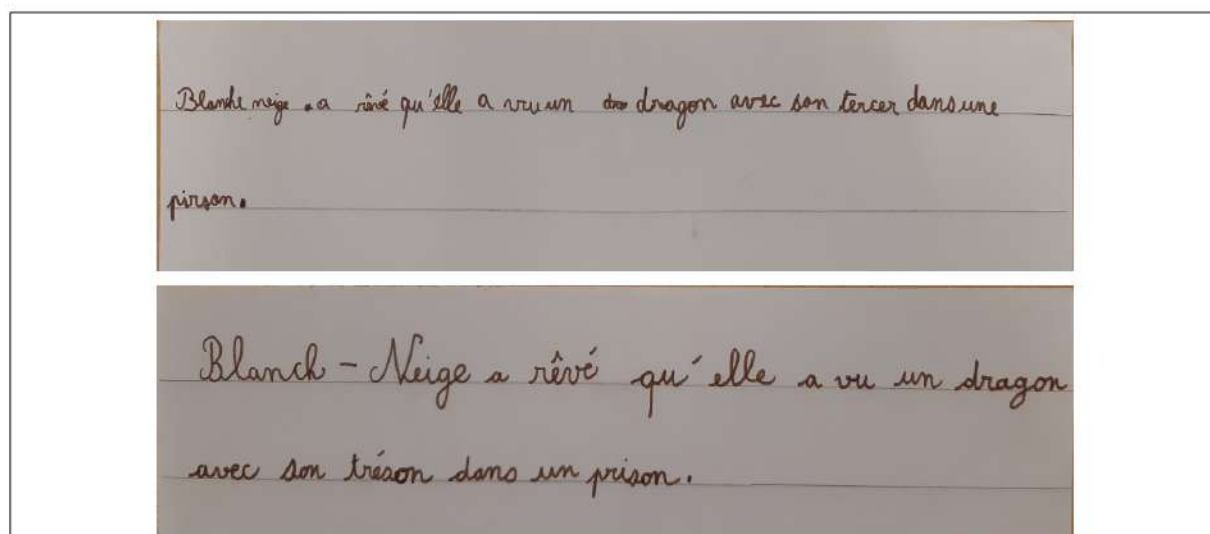 Blanche neige a rêvé qu'elle a vu un dragon avec son tercer dans une
pirson.
Blanch-Neige a rêvé qu'elle a vu un dragon
avec son tréson dans un prison.